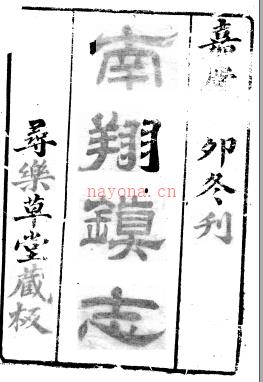 嘉
卯冬刊
南翔鎮志
尋樂草堂藏板
nayona.cn